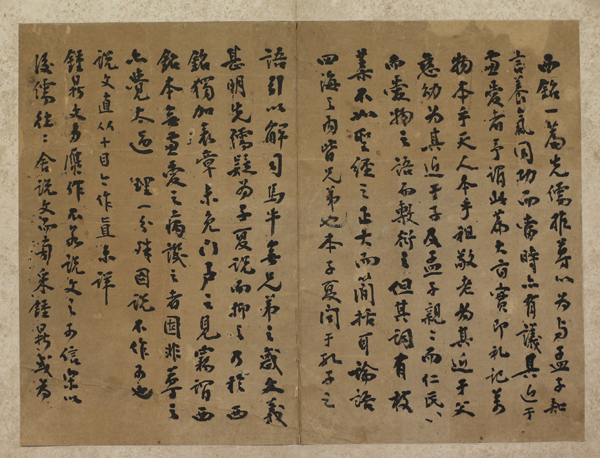 西銘一篇先儒推尊以為与孟子知
言養氣同功而當時亦有議其近于
兼愛者予謂此篇大旨實即礼記萬
物本乎天人本乎祖敬老為其近于父
慈幼為其近于子及孟子親〻而仁民〻
而愛物之語而敷衍之但其詞有枝
葉不如聖經之正大而簡括耳論語
四海之内皆兄弟也本子夏聞于孔子之
語引以解司馬牛無兄弟之感文義
甚明先儒疑為子夏說而抑之乃於西
銘獨加表章未免門戶之見竊謂西
銘本無兼愛之病議之者固非尊之
亦覺太過 理一分殊因說不作可也
說文直从十目作直未詳
鍾鼎文多贗作不若說文之可信宋以
後儒往〻舍說文而采鍾鼎或為